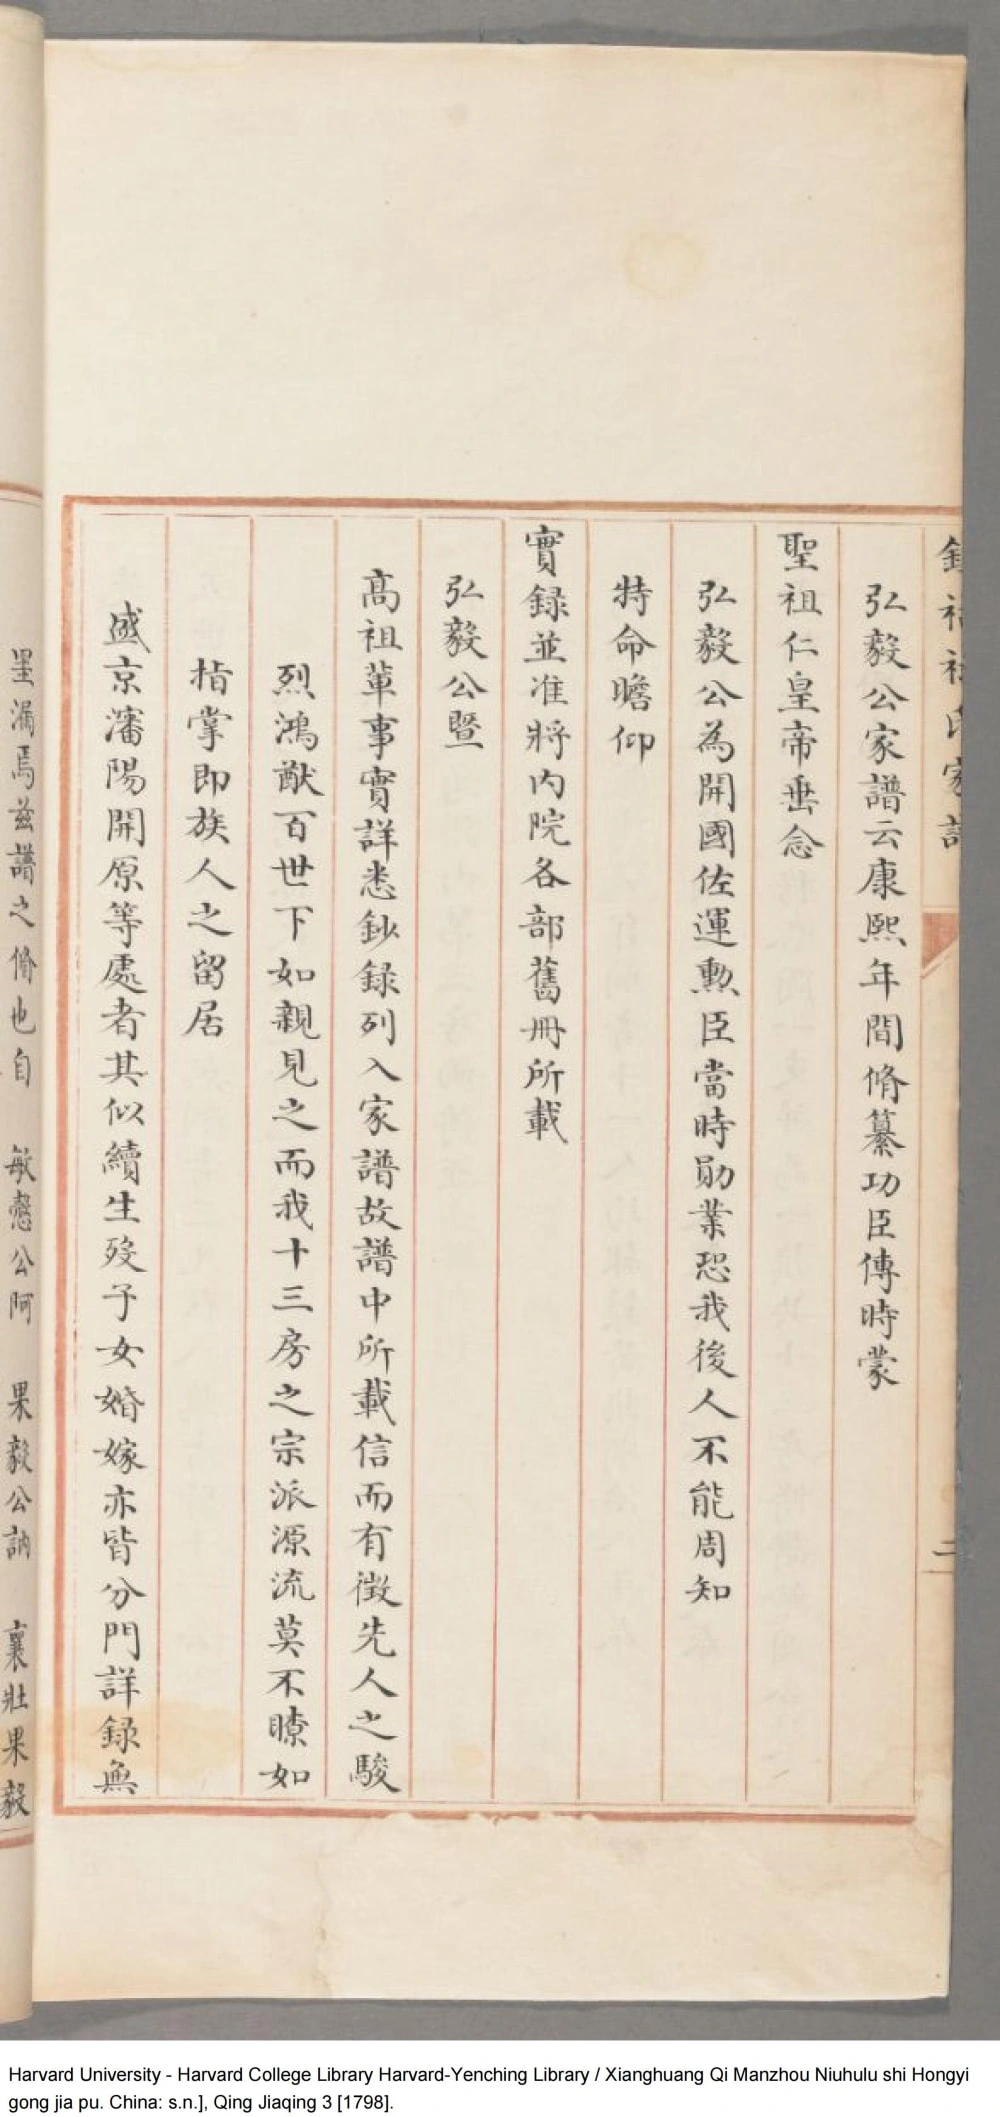 祿氏家
二
弘毅公家譜云康熙年間脩纂功臣傳時蒙
聖祖仁皇帝垂念
弘毅公為開國佐運勲臣當時勛業恐我後人不能周知
特命瞻仰
實録並准將內院各部舊冊所載
弘毅公暨
高祖輩事實詳悉鈔録列入家譜故譜中所載信而有徵先人之駿
烈鴻猷百世下如親見之而我十三房之宗派源流莫不瞭如
指掌即族人之留居
盛京瀋陽開原等處者其似續生殁子女婚嫁亦皆分門詳録無
里漏焉茲譜之脩也自 敏慤公阿 果毅公訥 襄壯果毅
Harvard University - Harvard College Library Harvard-Yenching Library / Xianghuang Qi Manzhou Niuhulu shi Hongyi
gong jia pu. China: s.n.], Qing Jiaqing 3 [1798].